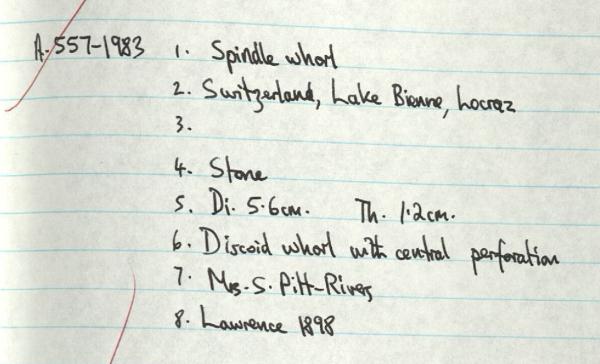 A.557-1983 1. Spindle whorl
2. Switzerland, Lake Bienne, Locraz
3.
4. Stone
5. Di. 5.6cm. Th. 1.2cm.
6. Discoid whorl with central perforation
7. Mrs. S. Pitt-Rivers
8. Lawrence 1898